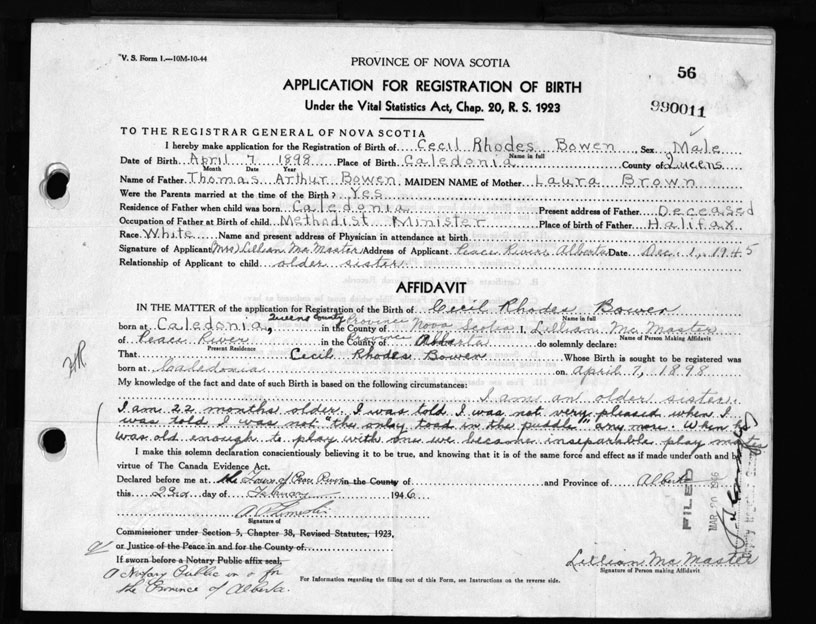 V. S. Form 1.—10M-10-44
PROVINCE OF NOVA SCOTIA
56
APPLICATION FOR REGISTRATION OF BIRTH
990011
Under the Vital Statistics Act, Chap. 20, R. S. 1923
TO THE REGISTRAR GENERAL OF NOVA SCOTIA
I hereby make application for the Registration of Birth of Cecil Rhodes Bowen Sex Male
Name in full
Date of Birth April 7 1898 Place of Birth Caledonia County of Queens
Month Date Year
Name of Father Thomas Arthur Bowen MAIDEN NAME of Mother Laura Brown
Were the Parents married at the time of the Birth? Yes
Residence of Father when child was born Caledonia Present address of Father Deceased
Occupation of Father at Birth of child Methodist Minister Place of birth of Father Halifax
Race White Name and present address of Physician in attendance at birth
Signature of Applicant (Mrs) Lillian McMaster Address of Applicant Peace River, Alberta Date Dec. 1, 1945
Relationship of Applicant to child older sister
AFFIDAVIT
IN THE MATTER of the application for Registration of the Birth of Cecil Rhodes Bowen
Name in full
born at Caledonia, Queens County in the County of Province Nova Scotia I, Lillian McMaster
Name of Person Making Affidavit
of Peace River in the County of Province Alberta do solemnly declare:
Present Residence
That Cecil Rhodes Bowen Whose Birth is sought to be registered was
born at Caledonia on April 7, 1898
My knowledge of the fact and date of such Birth is based on the following circumstances:
I am an older sister.
I am 22 months older. I was told I was not very pleased when I
was told I was not "the only toad in the puddle" any more. When he
was old enough to play with me we became inseparable play mates
I make this solemn declaration conscientiously believing it to be true, and knowing that it is of the same force and effect as if made under oath and by
virtue of The Canada Evidence Act.
Declared before me at the Town of Peace River in the County of and Province of Alberta
this 22nd day of February 1946
Signature of
Commissioner under Section 5, Chapter 38, Revised Statutes, 1923,
or Justice of the Peace in and for the County of
If sworn before a Notary Public affix seal,
a Notary Public in & for
the Province of Alberta.
For Information regarding the filling out of this Form, see Instructions on the reverse side.
Lillian McMaster
Signature of Person making Affidavit
FILED
MAR 20 1946